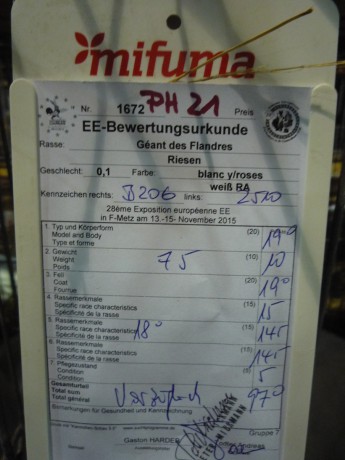 mifuma
Nr. 1672 PH 21 Preis
EE-Bewertungsurkunde
Rasse: Géant des Flandres
Riesen
Geschlecht: 0,1 Farbe: blanc y/roses
weiß RA
Kennzeichen rechts: D206 links: 2520
28ème Exposition européenne EE
in F-Metz am 13.-15- November 2015
1. Typ und Körperform (20) 19.0
Model and Body
Type et forme
2. Gewicht (10) 10
Weight 7 5
Poids
3. Fell (20) 190
Coat
Fourrue
4. Rassemerkmale (15) 15
Specific race characteristics
Spécificité de la rasse
5. Rassemerkmale (15) 145
Specific race characteristics 180
Spécificité de la rasse
6. Rassemerkmale (15) 145
Specific race characteristics
Spécificité de la rasse
7. Pflegezustand (5) 5
Condition
Condition
Gesamturteil 970
Total sum
Total général
Bemerkungen für Gesundheit und Kennzeichnung
Gruppe 7
Gaston HARDER Andreas